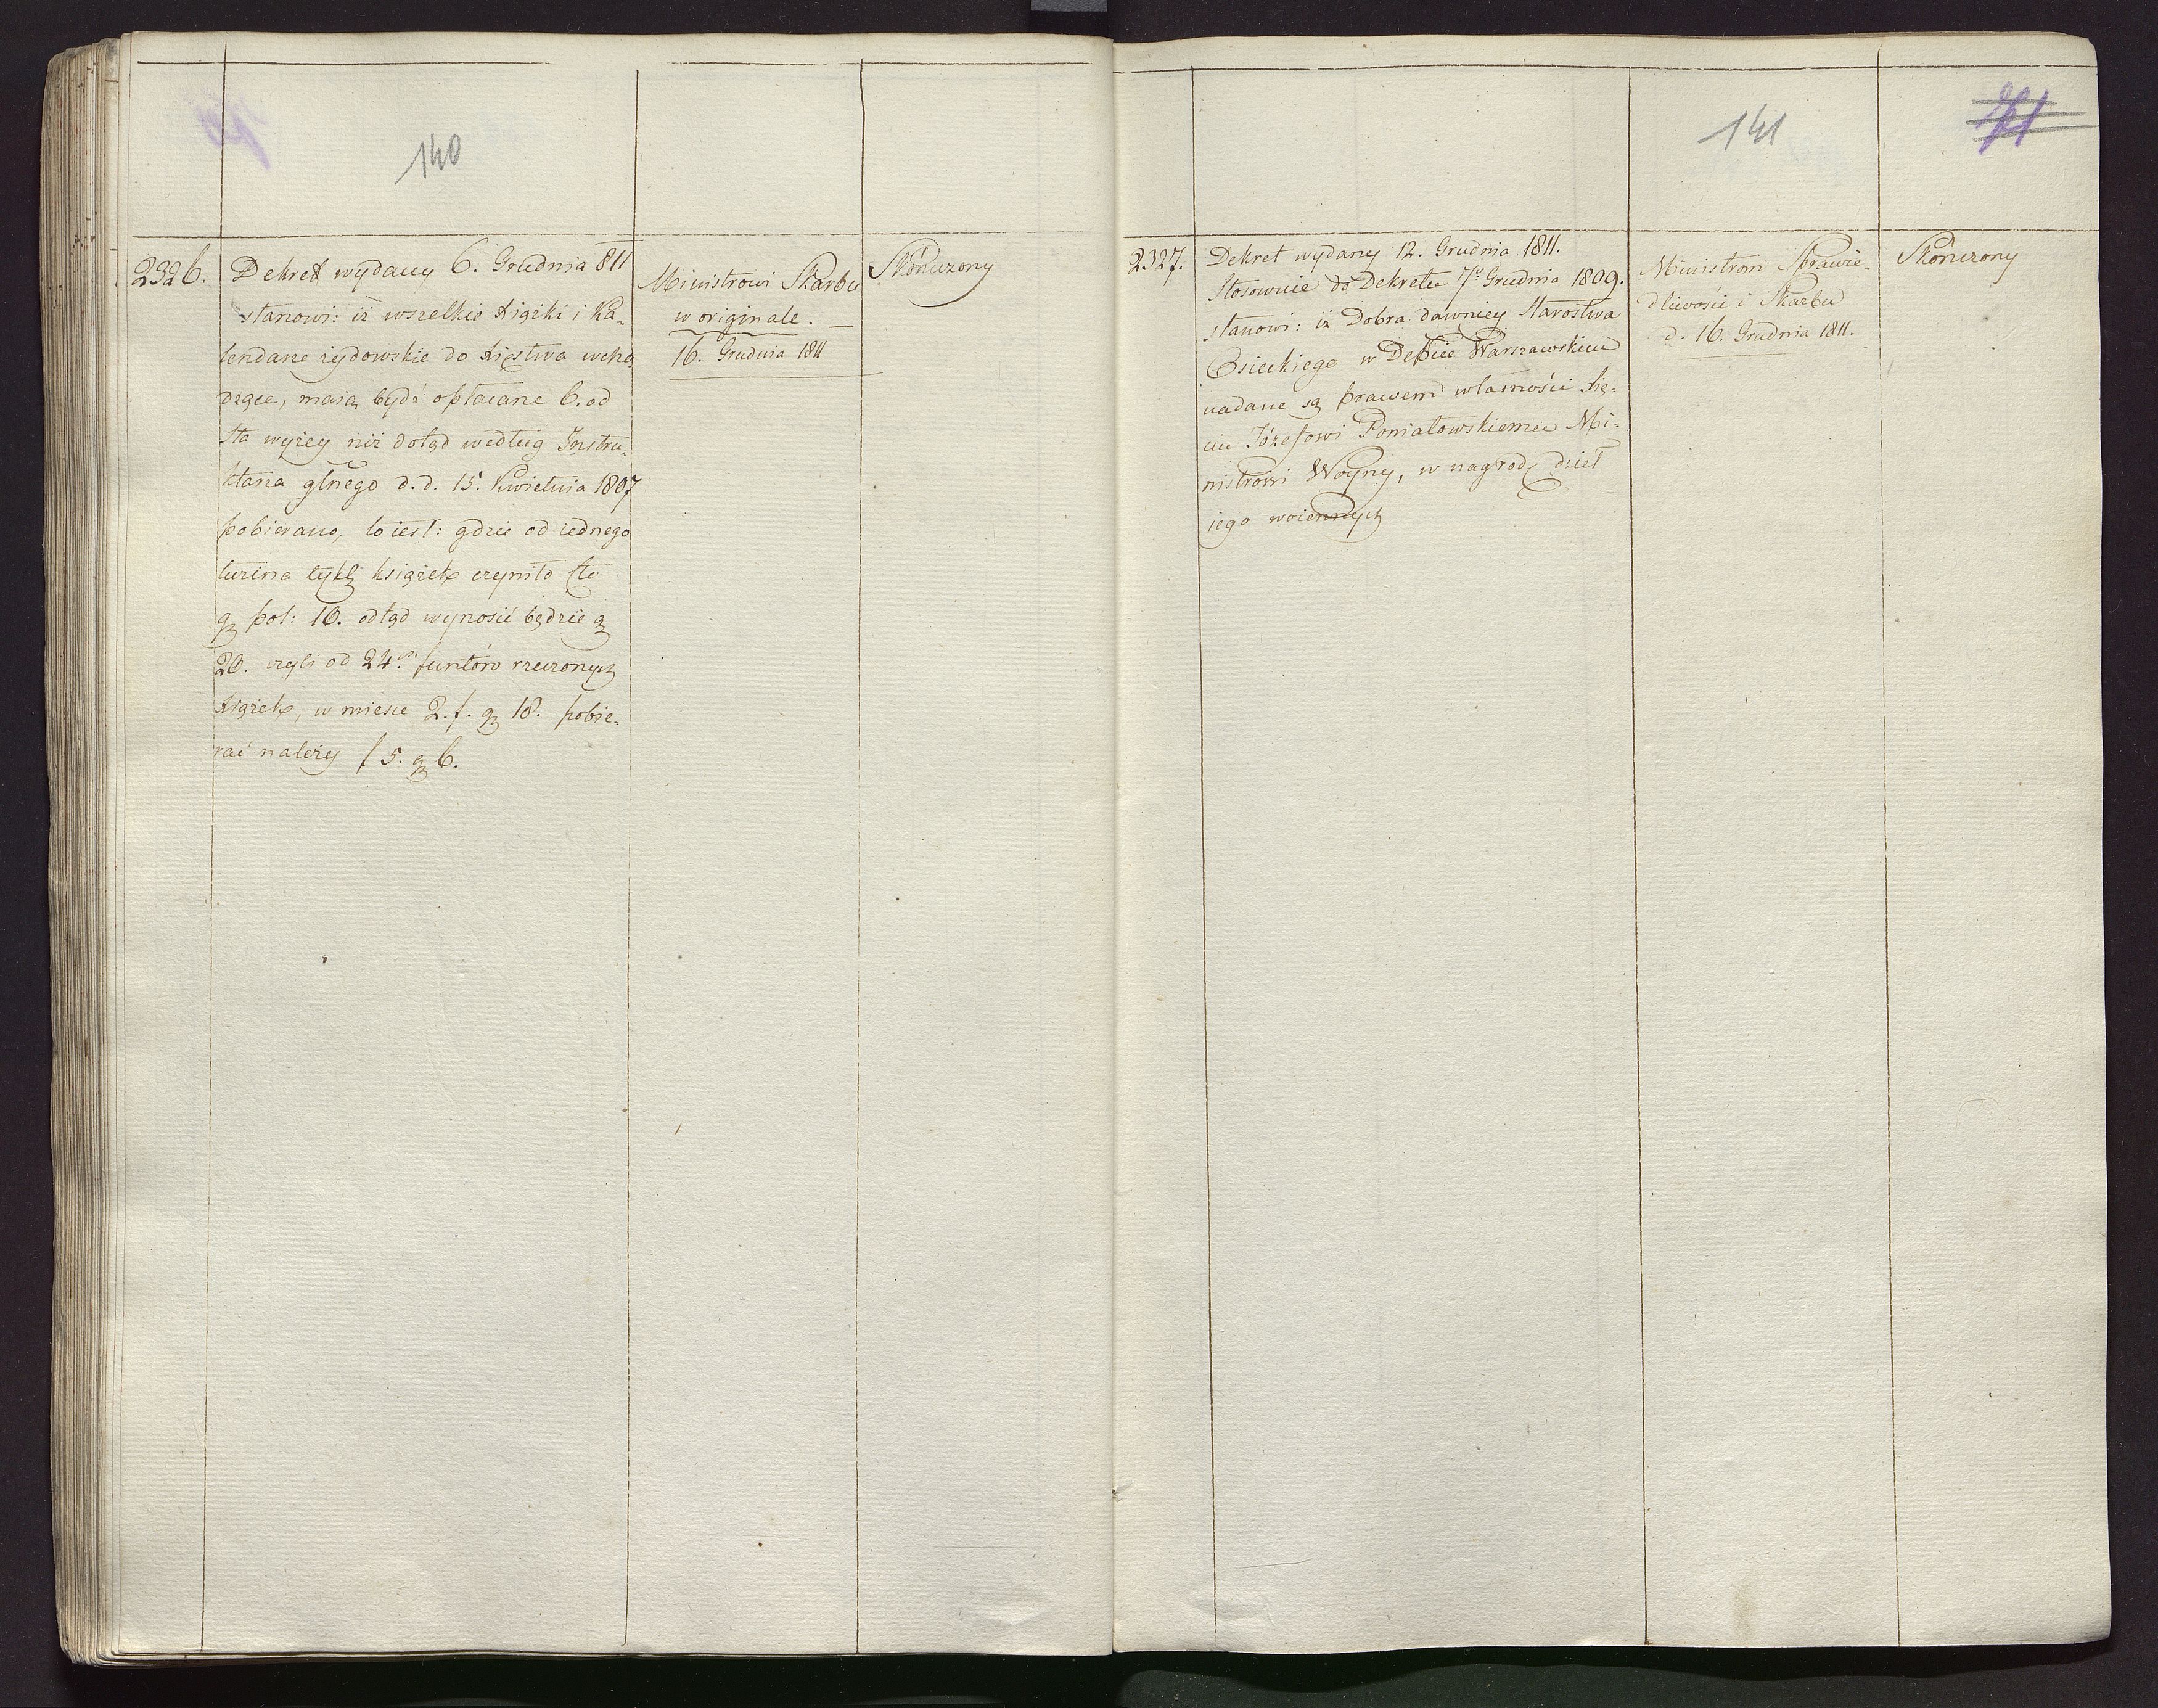 140
2326.
Dekret wydany 6. Grudnia 811
stanowi: iż wszelkie Xiążki i Ka-
lendarze żydowskie do Xięstwa wcho-
dzące, maią bydź opłacane 6. od
sta wyżey niż dotąd według Instru-
ktarza głnego d. d. 15. Kwietnia 1807
pobierano, to iest: gdzie od iednego
tuzina tykh książek czyniło Cło
gr pol: 10. odtąd wynosić będzie gr
20. czyli od 24. funtów rzeczonych
Xiążek, w miesce 2. f. gr 18. pobie-
rać należy f 5. gr 6.
Ministrowi Skarbu
w originale. —
16. Grudnia 1811
Skończony
141
71
2327.
Dekret wydany 12. Grudnia 1811.
Stosownie do Dekretu 7go Grudnia 1809.
stanowi: iż Dobra dawniey Starostwa
Osieckiego w Depcie Warszawskim
nadane są prawem własności Xię-
ciu Józefowi Poniatowskiemu Mi-
nistrowi Woyny, w nagrodę dzieł
iego woiennych
Ministrom Sprawie-
dliwości i Skarbu
d. 16. Grudnia 1811.
Skończony